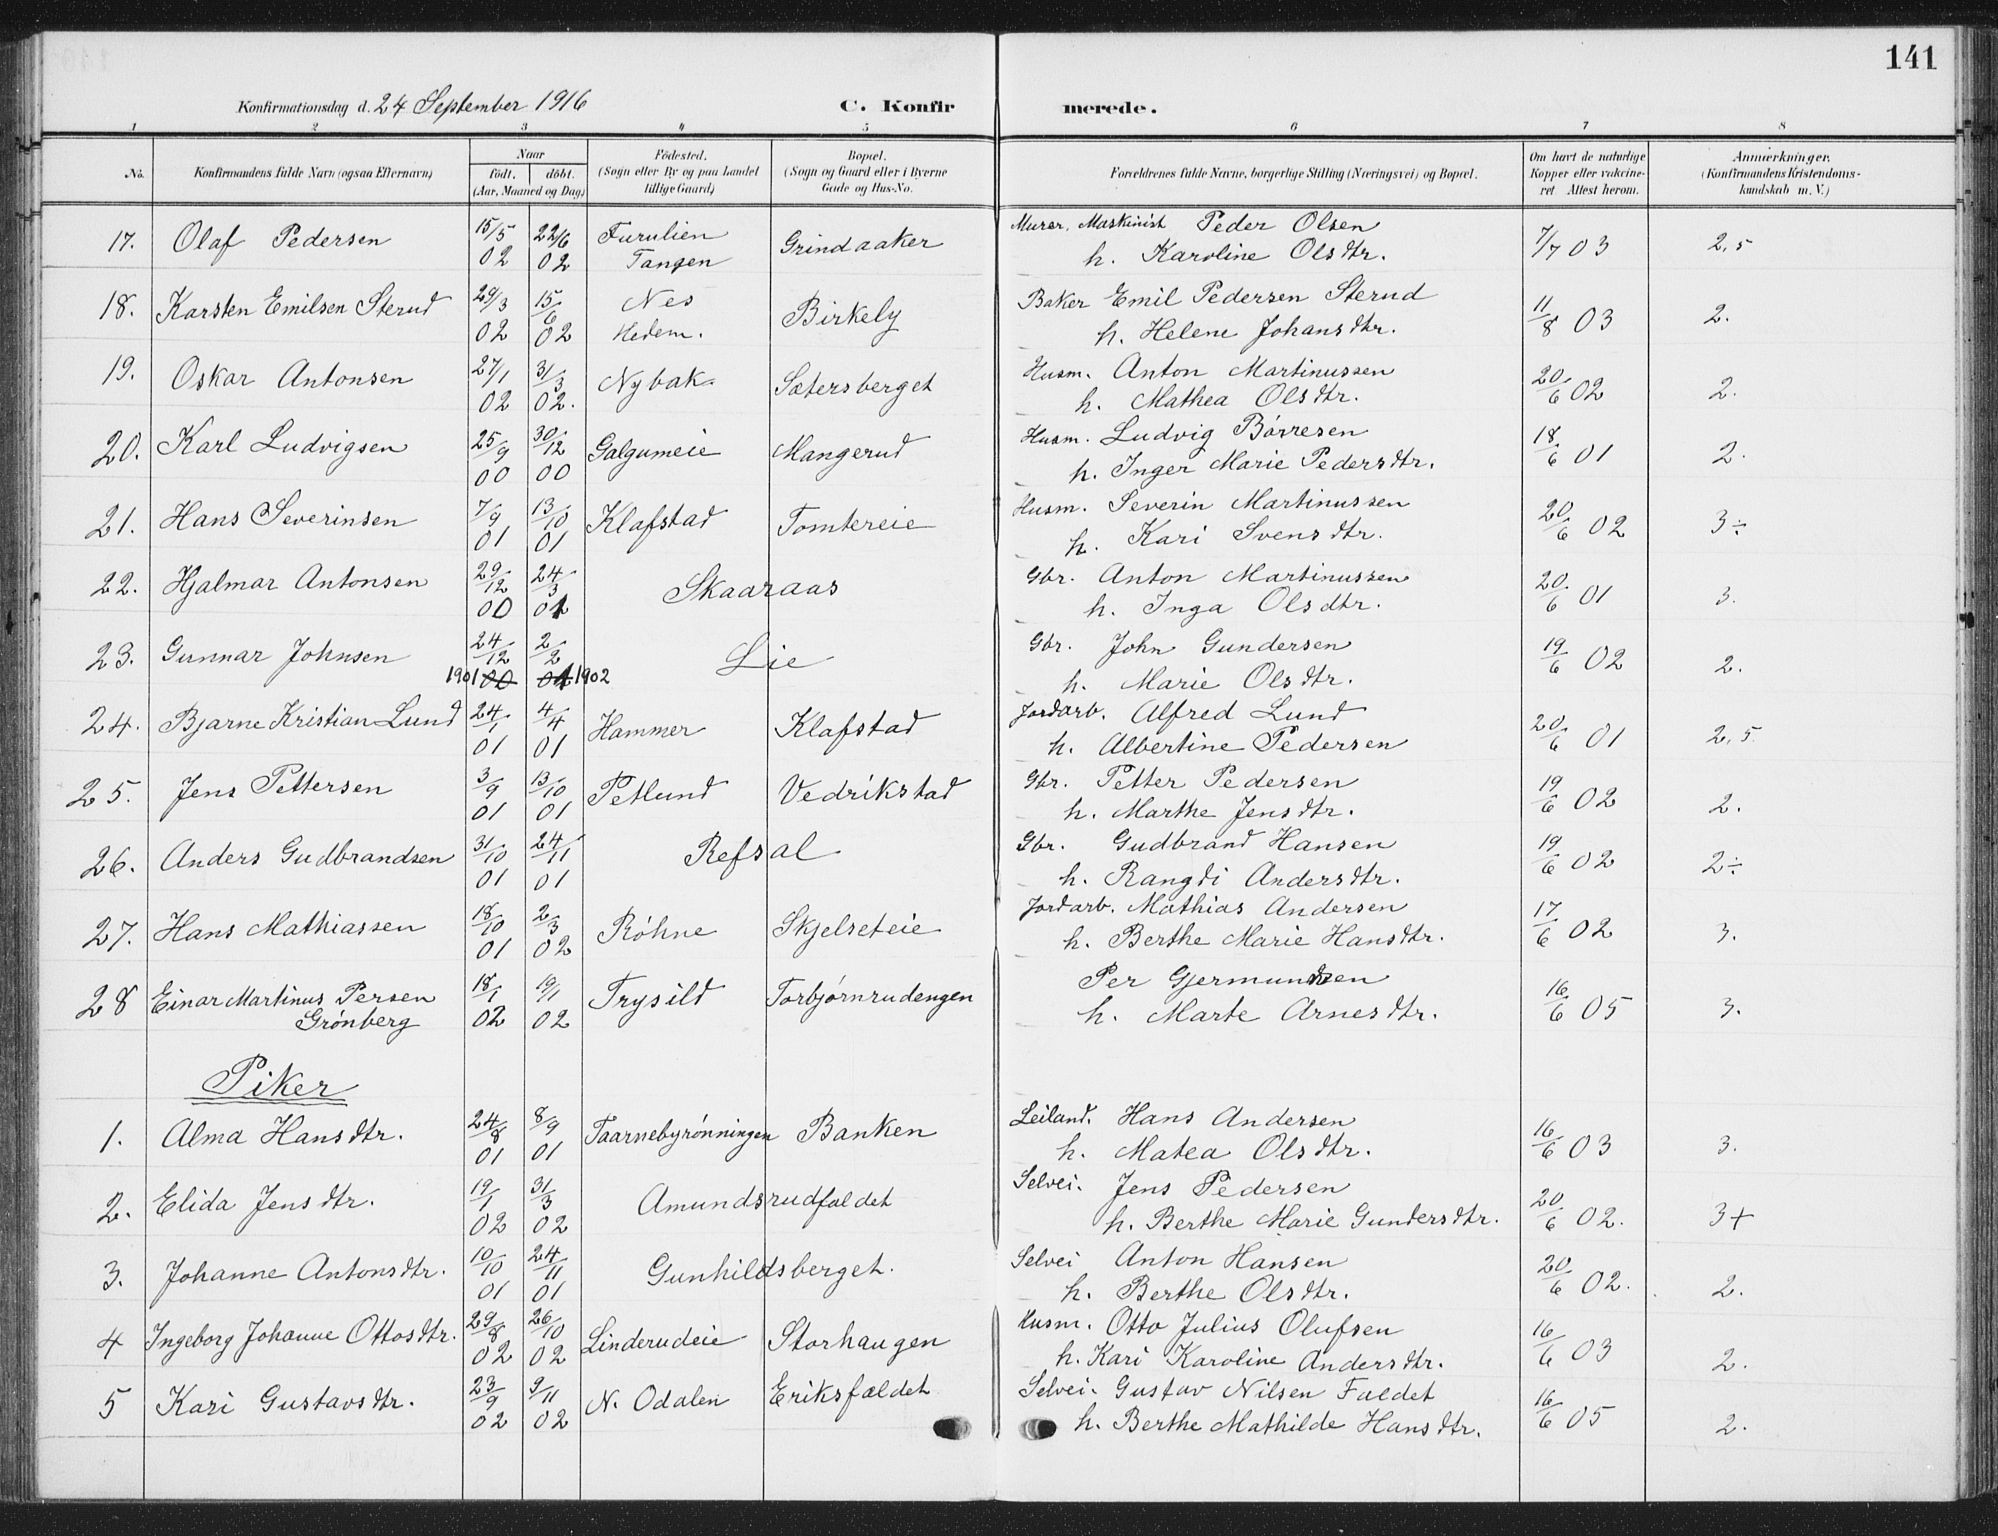 141
Konfirmationsdag d. 24 September 1916 C. Konfirmerede.
1 2 3 4 5 6 7 8
No. Konfirmandens fulde Navn (ogsaa Efternavn) Naar født. døbt. (Aar, Maaned og Dag) Fødested. (Sogn eller By og paa Landet tillige Gaard) Bopæl. (Sogn og Gaard eller i Byerne Gade og Hus-No. Forældrenes fulde Navne, borgerlige Stilling (Næringsvei) og Bopæl. Om havt de naturlige Kopper eller vakcineret Attest herom. Anmærkninger. (Konfirmandens Kristendomskundskab m. V.)
17. Olaf Pedersen 15/5 02 22/6 02 Furulien Tangen Grindaaker Murer, Maskinist Peder Olsen 7/7 03 2,5
h. Karoline Olsdtr.
18. Karsten Emilsen Sterud 29/3 02 15/6 02 Nes Hedem. Birkely Baker Emil Pedersen Sterud 11/8 03 2.
h. Helene Johansdtr.
19. Oskar Antonsen 27/1 02 31/3 02. Nybak Sætersberget Husm. Anton Martinussen 20/6 02 2.
h. Mathea Olsdtr.
20. Karl Ludvigsen 25/9 00 30/12 00 Galgumeie Mangerud Husm. Ludvig Børresen 18/6 01 2.
h. Inger Marie Pedersdtr.
21. Hans Severinsen 7/9 01 13/10 01 Klafstad Tomtereie Husm. Severin Martinussen 20/6 02 3÷
h. Kari Svensdtr.
22. Hjalmar Antonsen 29/12 00 24/3 01 Skaaraas Gbr. Anton Martinussen 20/6 01 3.
h. Inga Olsdtr.
23. Gunnar Johnsen 24/12 1901 00 2/2 01 1902 Lie Gbr. John Gundersen 19/6 02 2.
h. Marie Olsdtr.
24. Bjarne Kristian Lund 24/1 01 4/4 01 Hammer Klafstad Jordarb. Alfred Lund 20/6 01 2,5
h. Albertine Pedersen
25. Jens Pettersen 3/9 01 13/10 01 Petlund Vedrikstad Gbr. Petter Pedersen 19/6 02 2.
h. Marthe Jensdtr.
26. Anders Gudbrandsen 31/10 01 24/11 01 Refsal Gbr. Gudbrand Hansen 19/6 02 2÷
h. Rangdi Andersdtr.
27. Hans Mathiassen 18/10 01 2/3 02 Røhne Skjelseteie Jordarb. Mathias Andersen 17/6 02 3.
h. Berthe Marie Hansdtr.
28 Einar Martinus Persen Grønberg 18/1 02 19/1 02 Trysild Torbjørnrudengen Per Gjermundsen 16/6 05 3.
h. Marte Arnesdtr.
Piker
1. Alma Hansdtr. 24/8 01 8/9 01 Taarnebyrønningen Banken Leiland. Hans Andersen 16/6 03 3.
h. Matea Olsdtr.
2. Elida Jensdtr. 19/1 02 31/3 02 Amundsrudfaldet Selvei. Jens Pedersen 20/6 02. 3+
h. Berthe Marie Gundersdtr.
3. Johanne Antonsdtr. 10/10 01 24/11 01 Gunhildsberget. Selvei Anton Hansen 20/6 02. 2.
h. Berthe Olsdtr.
4 Ingeborg Johanne Ottosdtr. 29/8 02 26/10 02 Linderudeie Storhaugen Husm. Otto Julius Olufsen 16/6 03 2.
h. Kari Karoline Andersdtr.
5 Kari Gustavsdtr. 23/9 02 9/11 02 N. Odalen Eriksfaldet Selvei. Gustav Nilsen Faldet 16/6 05 2.
h. Berthe Mathilde Hansdtr.